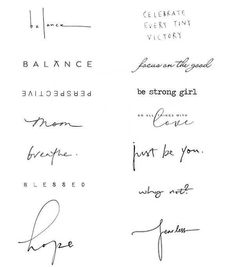 balance
CELEBRATE
EVERY TINY
VICTORY
BALANCE
focus on the good
PERSPECTIVE
be strong girl
mom
DO ALL THINGS WITH
love
breathe.
just be you.
BLESSED
why not?
hope
fearless